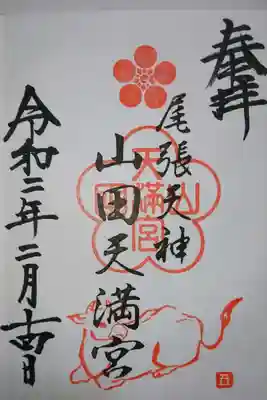 奉拝
尾張天神
山田天満宮
山田
天満宮
令和二年二月十四日